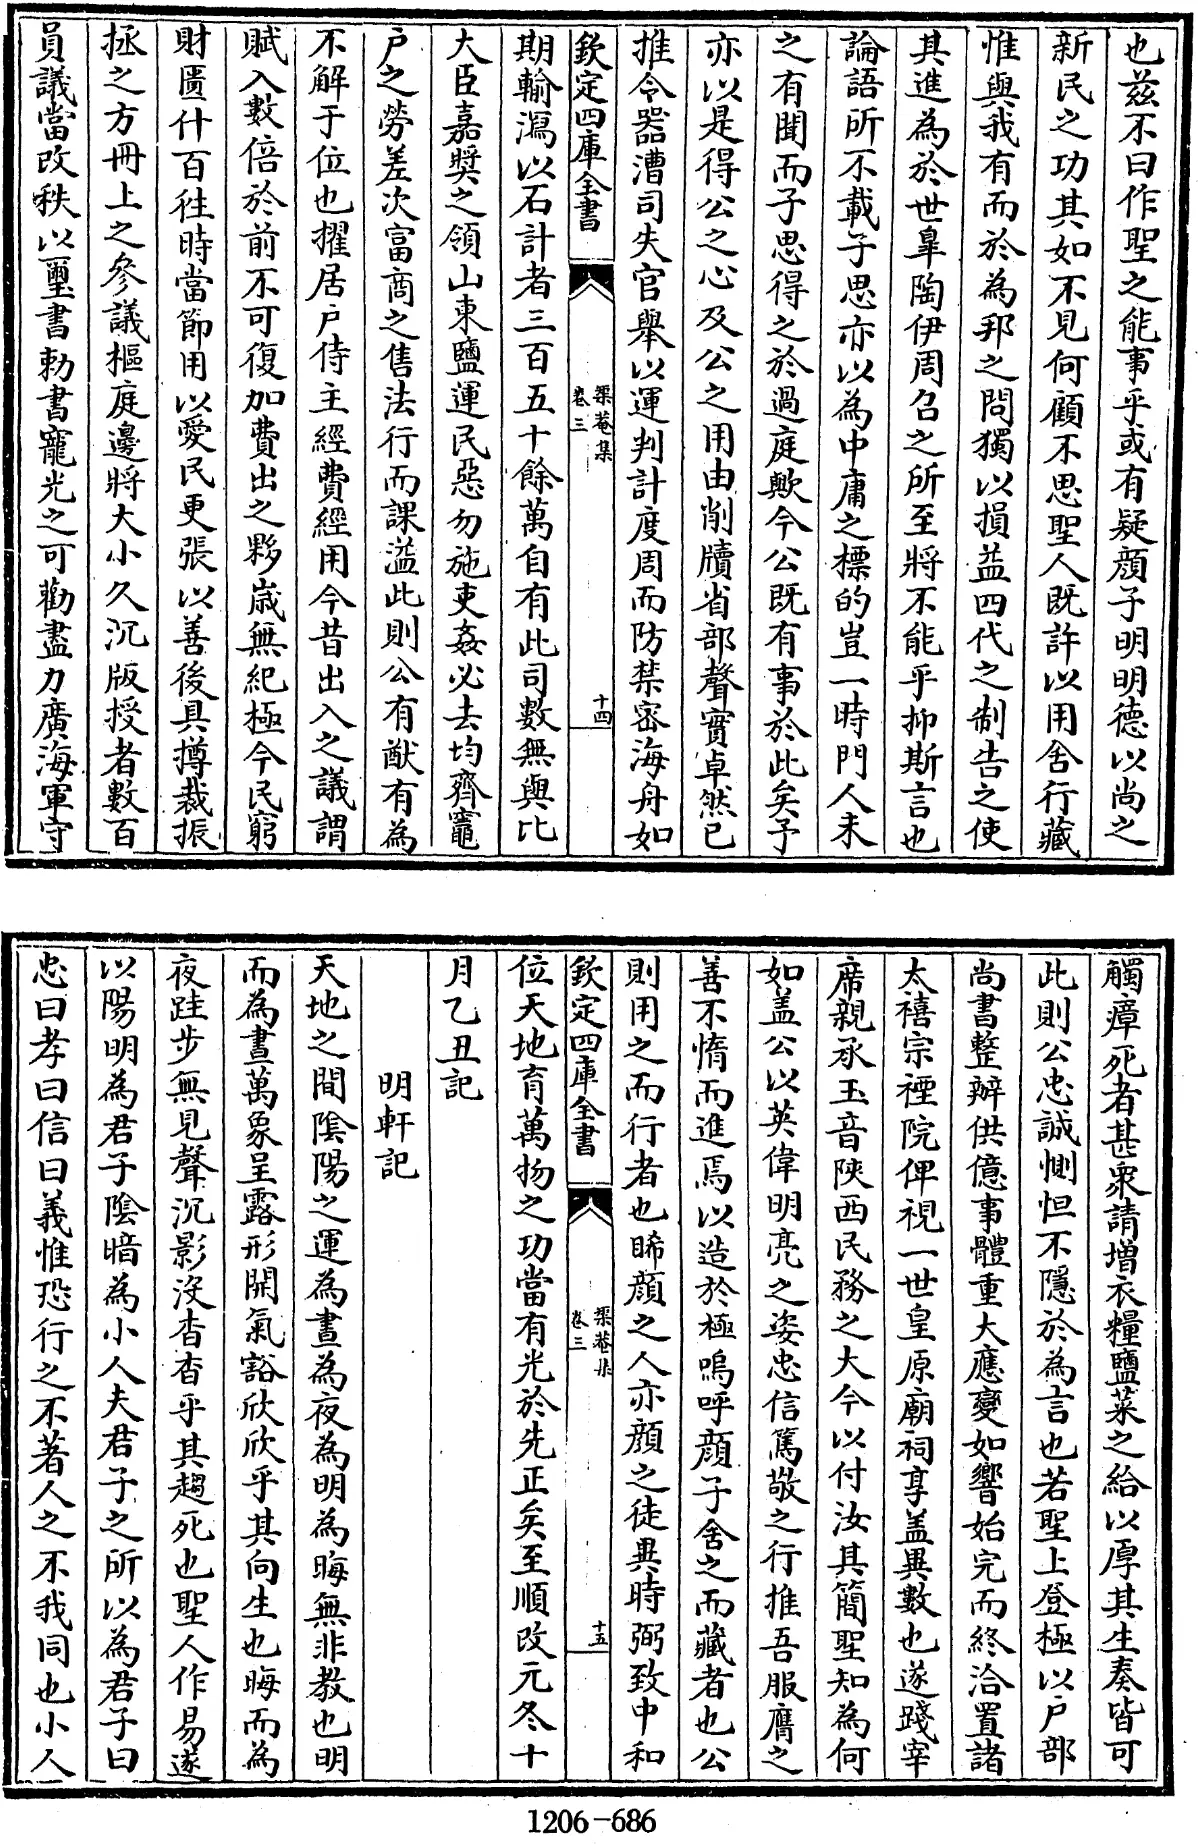 也兹不曰作聖之能事乎或有疑顔子明明德以尚之
新民之功其如不見何顧不思聖人既許以用舍行藏
惟與我有而於為邦之問獨以損益四代之制告之使
其進為於世臯陶伊周召之所至將不能乎抑斯言也
論語所不載子思亦以為中庸之標的豈一時門人未
之有聞而子思得之於過庭歟今公既有事於此矣予
亦以是得公之心及公之用由削牘省部聲實卓然已
推令器漕司失官舉以運判計度周而防禁密海舟如
欽定四庫全書
榘菴集
卷三
十四
期輸瀉以石計者三百五十餘萬自有此司數無與比
大臣嘉奬之領山東鹽運民惡勿施吏姦必去均齊竈
户之勞差次富商之售法行而課溢此則公有猷有為
不解于位也擢居户侍主經費經用今昔出入之議謂
賦入數倍於前不可復加費出之夥歲無紀極今民窮
財匱什百徃時當節用以愛民更張以善後具撙裁振
拯之方冊上之參議樞庭邊將大小久沉版授者數百
員議當改秩以璽書勅書寵光之可勸盡力廣海軍守
觸瘴死者甚衆請増衣糧鹽菜之給以厚其生奏皆可
此則公忠誠惻怛不隱於為言也若聖上登極以户部
尚書整辦供億事體重大應變如響始完而終洽置諸
太禧宗禋院俾視一世皇原廟祠享盖異數也遂踐宰
席親承玉音陜西民務之大今以付汝其簡聖知為何
如盖公以英偉明亮之姿忠信篤敬之行推吾服膺之
善不惰而進焉以造於極嗚呼顔子舍之而藏者也公
則用之而行者也睎顔之人亦顔之徒異時弼致中和
欽定四庫全書
榘菴集
卷三
十五
位天地育萬物之功當有光於先正矣至順改元冬十
月乙丑記
明軒記
天地之間陰陽之運為晝為夜為明為晦無非教也明
而為晝萬象呈露形開氣豁欣欣乎其向生也晦而為
夜跬步無見聲沉影沒杳杳乎其趨死也聖人作易遂
以陽明為君子陰暗為小人夫君子之所以為君子曰
忠曰孝曰信曰義惟恐行之不著人之不我同也小人
1206-686